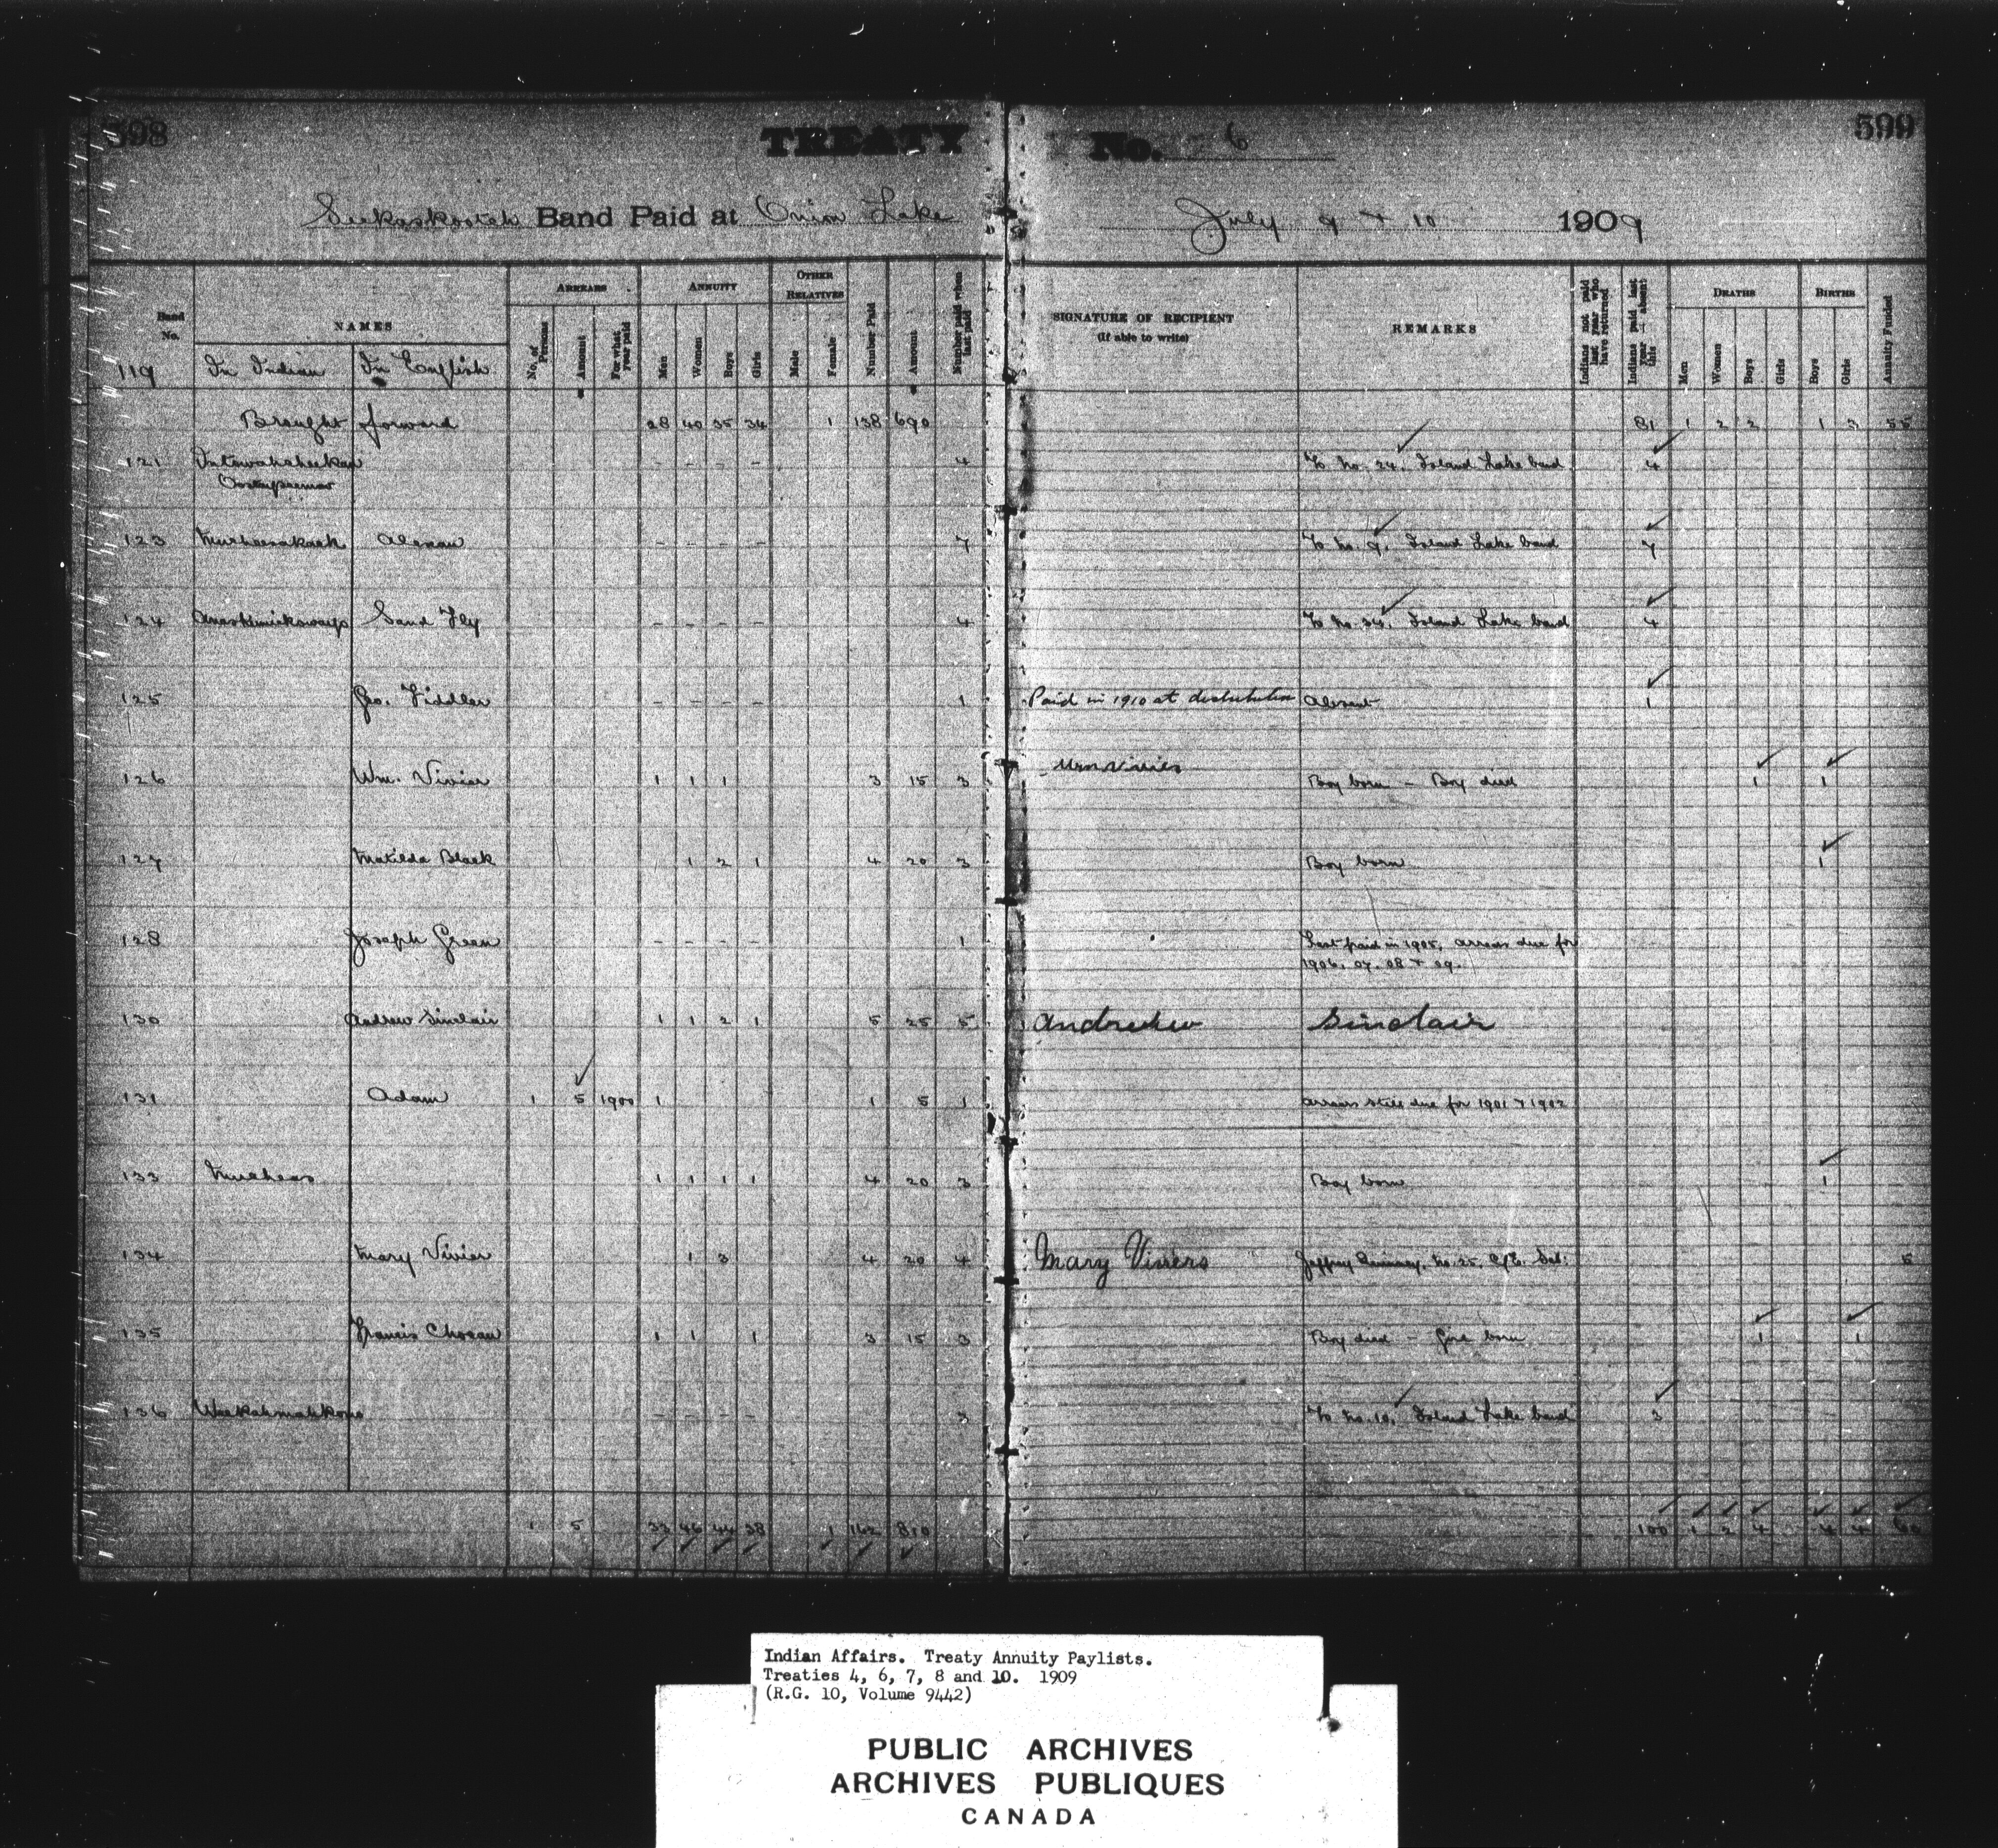 598
TREATY No. 6
599
Seekaskootch Band Paid at Onion Lake July 9 + 10 1909
Band No.
NAMES
ARREARS
ANNUITY
OTHER RELATIVES
No. of Persons
Amount
For what year paid
Men
Women
Boys
Girls
Male
Female
Number Paid
Amount
Number paid when last paid
SIGNATURE OF RECIPIENT
(If able to write)
REMARKS
Indians not paid last year who have returned
Indians paid last year — absent this
DEATHS
BIRTHS
Men
Women
Boys
Girls
Boys
Girls
Annuity Funded
119 In Indian In English
Brought forward 28 40 35 34 1 138 690 81 1 2 2 1 3 55
121 - - - - 4 To No. 24, Island Lake band 4
123 - - - - 7 To No. 9, Island Lake band 7
124 Sand Fly - - - - 4 To No. 34, Island Lake band 4
125 Geo. Fiddler - - - - 1 Paid in 1910 at distribution Absent 1
126 Wm. Vivier 1 1 1 3 15 3 Wm Vivier Boy born - Boy died 1 1
127 Matilda Black 1 2 1 4 20 3 Boy born 1
128 Joseph Green - - - - 1 Last paid in 1905, arrears due for
1906, 07, 08 + 09.
130 Andrew Sinclair 1 1 2 1 5 25 5 Andrew Sinclair
131 Adam 1 5 1900 1 1 5 1 Arrears still due for 1901 + 1902
133 1 1 1 1 4 20 3 Boy born 1
134 Mary Vivier 1 3 4 20 4 Mary Viviers No. 25, 5
135 Francis 1 1 1 3 15 3 Boy died - Girl born 1 1
136 - - - - 3 To No. 10, Island Lake band 3
1 5 33 46 44 38 1 162 810 100 1 2 4 4 4 60
Indian Affairs. Treaty Annuity Paylists.
Treaties 4, 6, 7, 8 and 10. 1909
(R.G. 10, Volume 9442)
PUBLIC ARCHIVES
ARCHIVES PUBLIQUES
CANADA